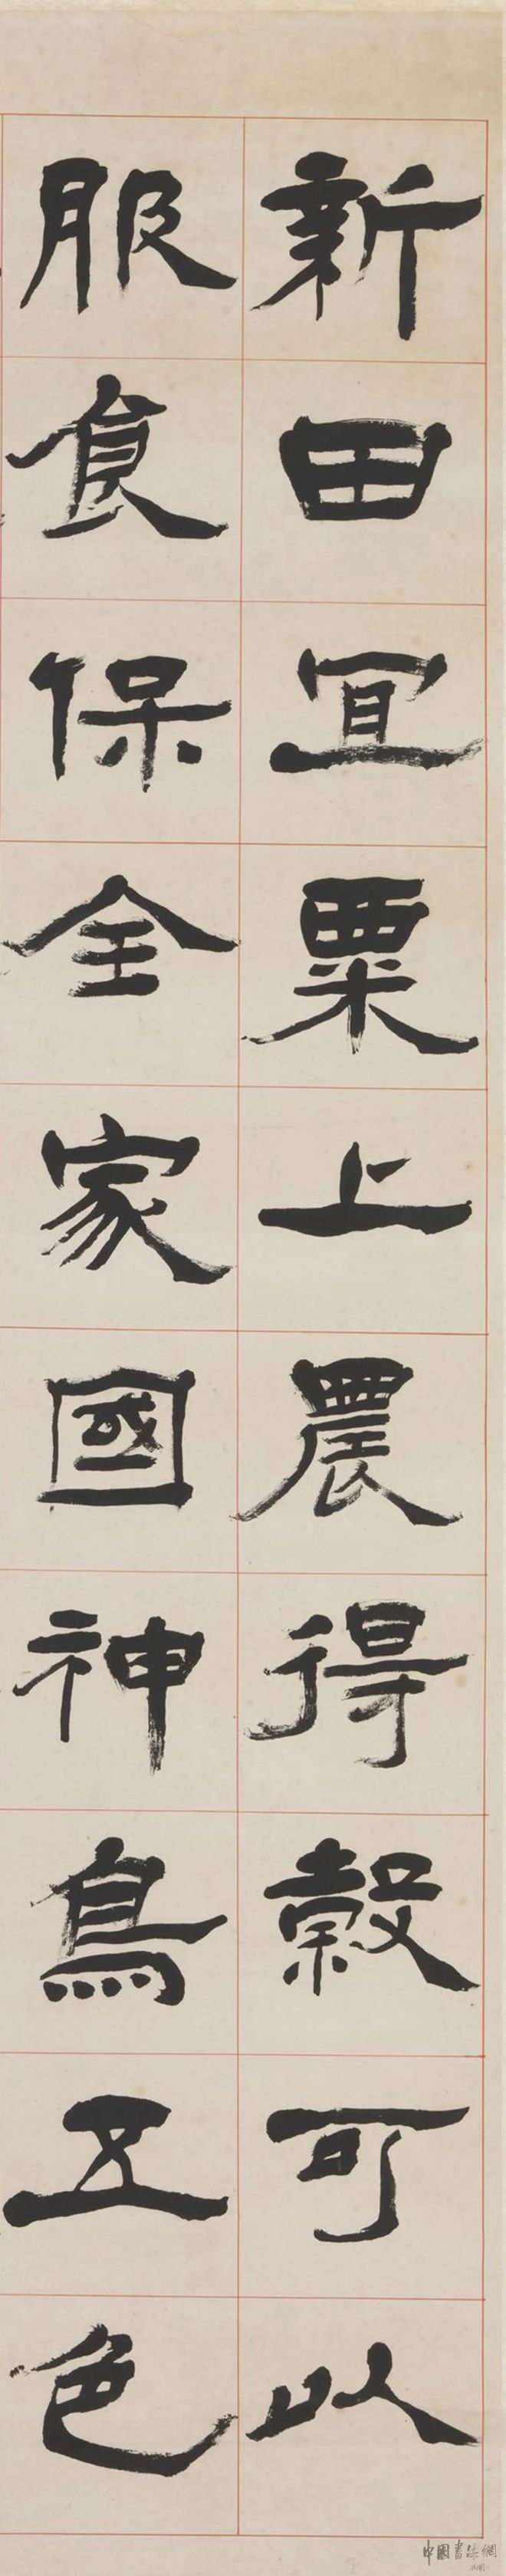 新田宜粟上農得穀可以
服食保全家國神鳥五色
中國書法網